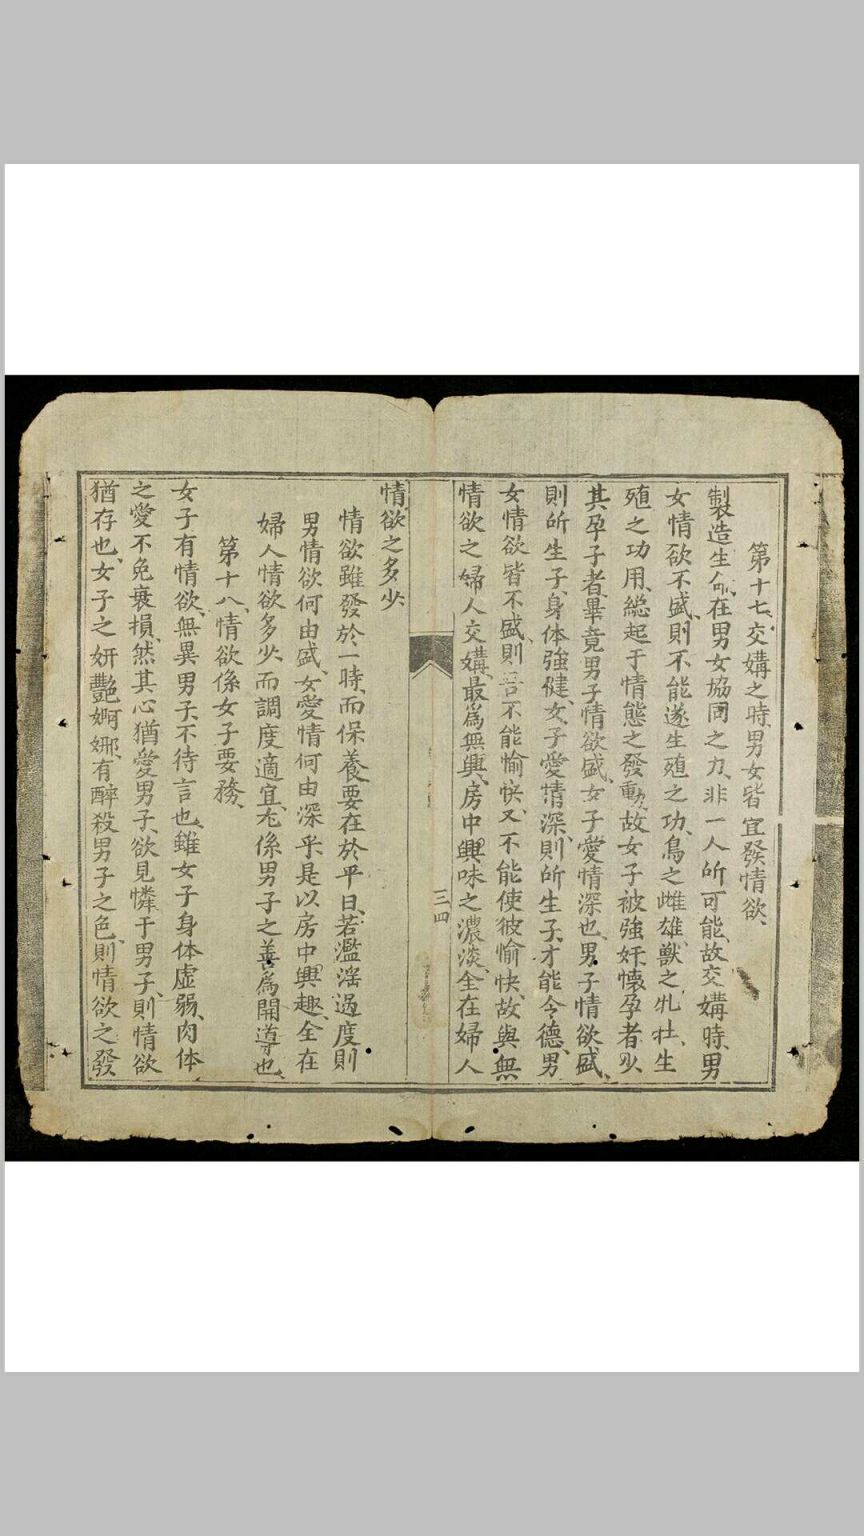 第十七、交媾之時、男女皆宜發情欲、
製造生命、在男女協同之力、非一人所可能、故交媾時、男
女情欲不盛、則不能遂生殖之功、鳥之雌雄、獸之牝牡、生
殖之功用、縂起于情態之發動、故女子被強奸懷孕者少、
其孕子者、畢竟男子情欲盛、女子愛情深也、男子情欲盛、
則所生子、身体強健、女子愛情深、則所生子、才能令德、男
女情欲皆不盛、則吾不能愉快、又不能使彼愉快、故與無
情欲之婦人交媾、最爲無興、房中興味之濃淡、全在婦人
三四
情欲之多少、
情欲雖發於一時、而保養要在於平日、若濫淫過度則
男情欲何由盛、女愛情何由深乎、是以房中興趣、全在
婦人情欲多少、而調度適宜、尤係男子之善爲開導也、
第十八、情欲係女子要務、
女子有情欲、無異男子、不待言也、雖女子身体虛弱、肉体
之愛不免衰損、然其心猶愛男子、欲見憐于男子、則情欲
猶存也、女子之妍艷婀娜、有醉殺男子之色、則情欲之發